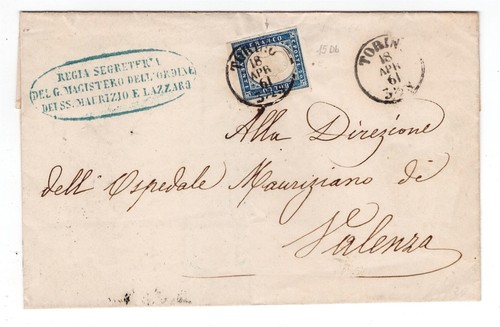 REGIA SEGRETERIA
DEL G. MAGISTERO DELL'ORDINE
DEI SS. MAURIZIO E LAZZARO
TORINO
18
APR
61
FRANCO
15Db
TORINO
18
APR
61
Alla Direzione
dell'Ospedale Mauriziano di
Valenza